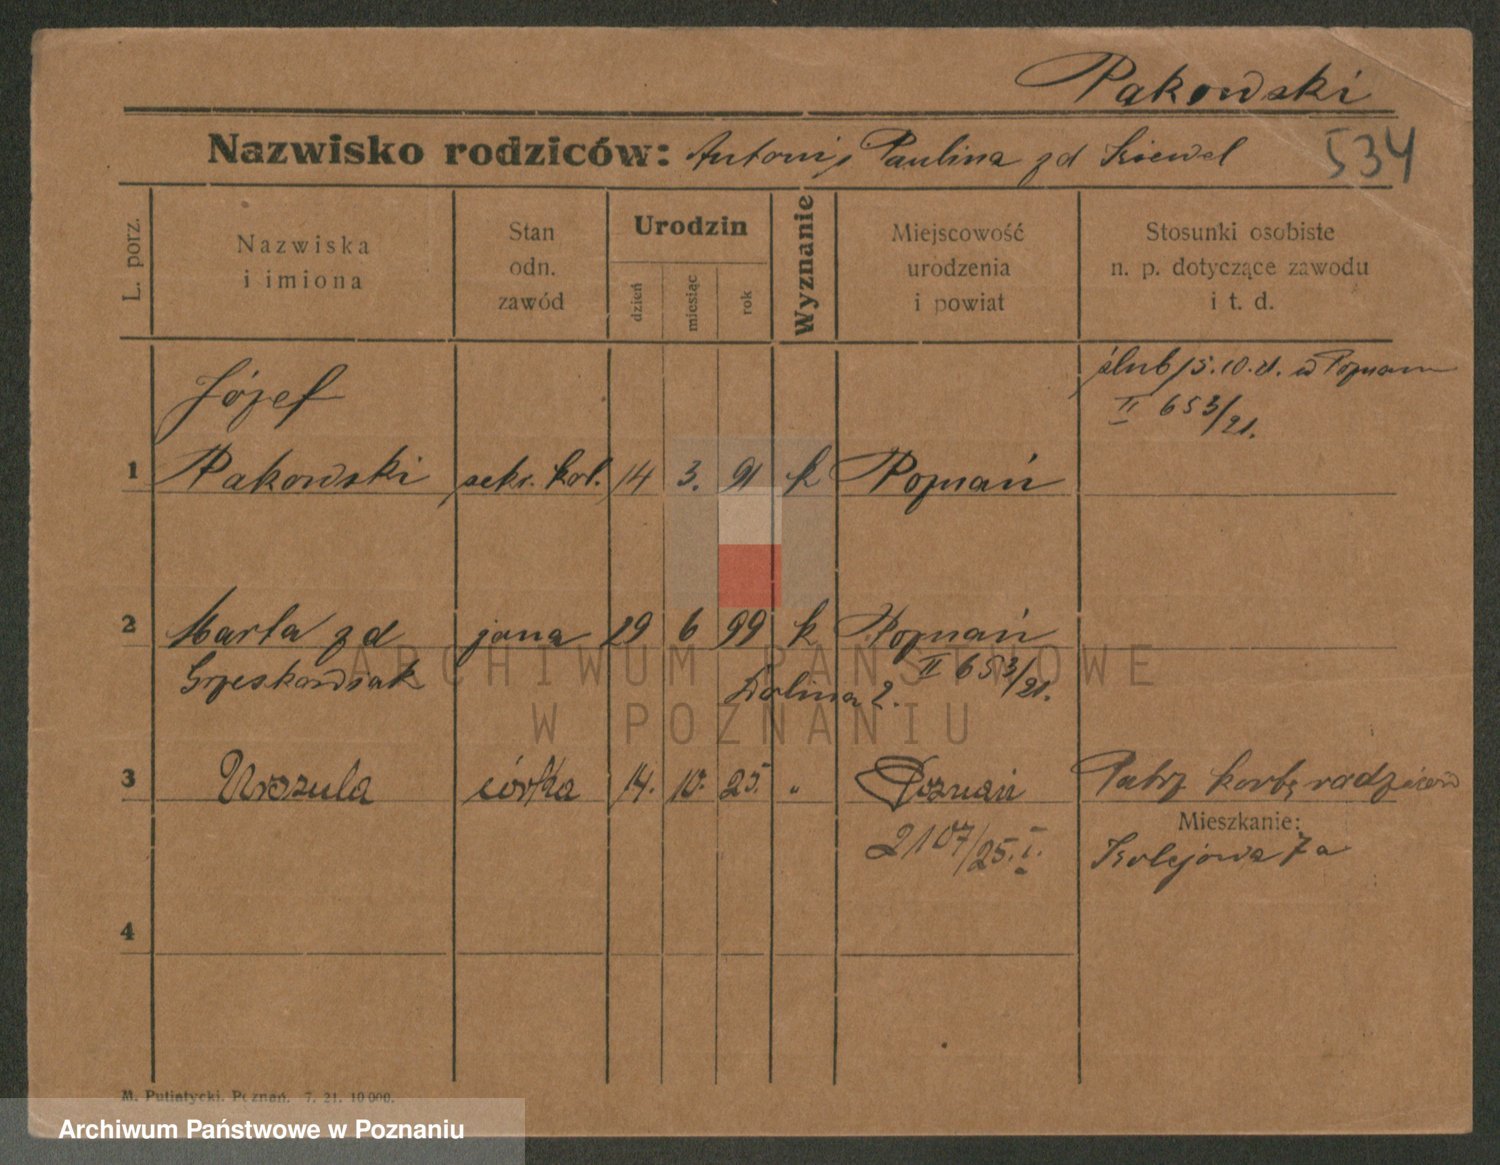 Pąkowski
Nazwisko rodziców: Antoni i Paulina zd
534
L. porz.
Nazwiska
i imiona
Stan
odn.
zawód
Urodzin
dzień
miesiąc
rok
Wyznanie
Miejscowość
urodzenia
i powiat
Stosunki osobiste
n. p. dotyczące zawodu
i t. d.
ślub 15.10.21. w Poznaniu
II 653/21.
Józef
1 Pakowski sekr. kol. 14 3. 91 k Poznań
2 Marta zd żona 29 6 99 k Poznań
Grzeskowiak Dolina 2. II 653/21.
ARCHIWUM PAŃSTWOWE
W POZNANIU
3 Urszula córka 14. 10. 25. " Poznań Patrz kartę rodziców
2107/25. I.
Mieszkanie:
Kolejowa 7a
4
M. Putiatycki. Poznań. 7. 21. 10000.
Archiwum Państwowe w Poznaniu